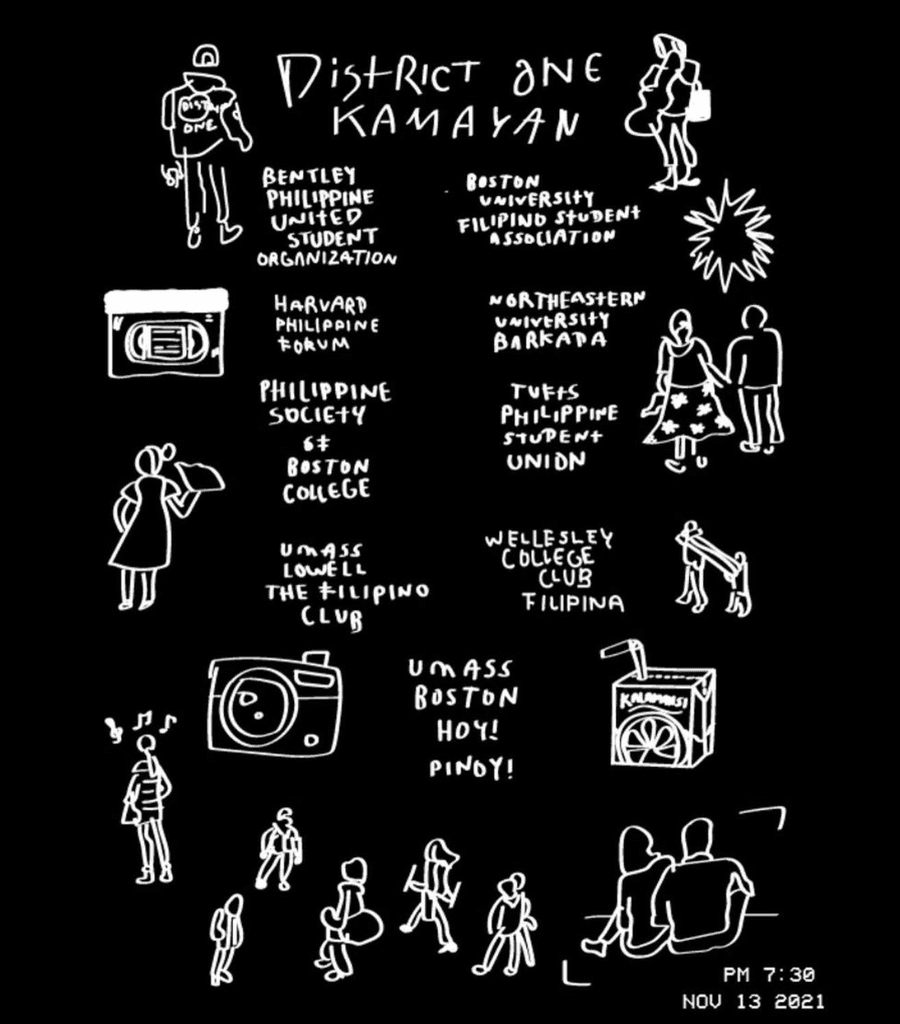 DISTRICT ONE
KAMAYAN
DIST
ONE
BENTLEY
PHILIPPINE
UNITED
STUDENT
ORGANIZATION
BOSTON
UNIVERSITY
FILIPINO STUDENT
ASSOCIATION
HARVARD
PHILIPPINE
FORUM
NORTHEASTERN
UNIVERSITY
BARKADA
PHILIPPINE
SOCIETY
OF
BOSTON
COLLEGE
TUFTS
PHILIPPINE
STUDENT
UNION
UMASS
LOWELL
THE FILIPINO
CLUB
WELLESLEY
COLLEGE
CLUB
FILIPINA
UMASS
BOSTON
HOY!
PINOY!
KALAMANSI
PM 7:30
NOV 13 2021